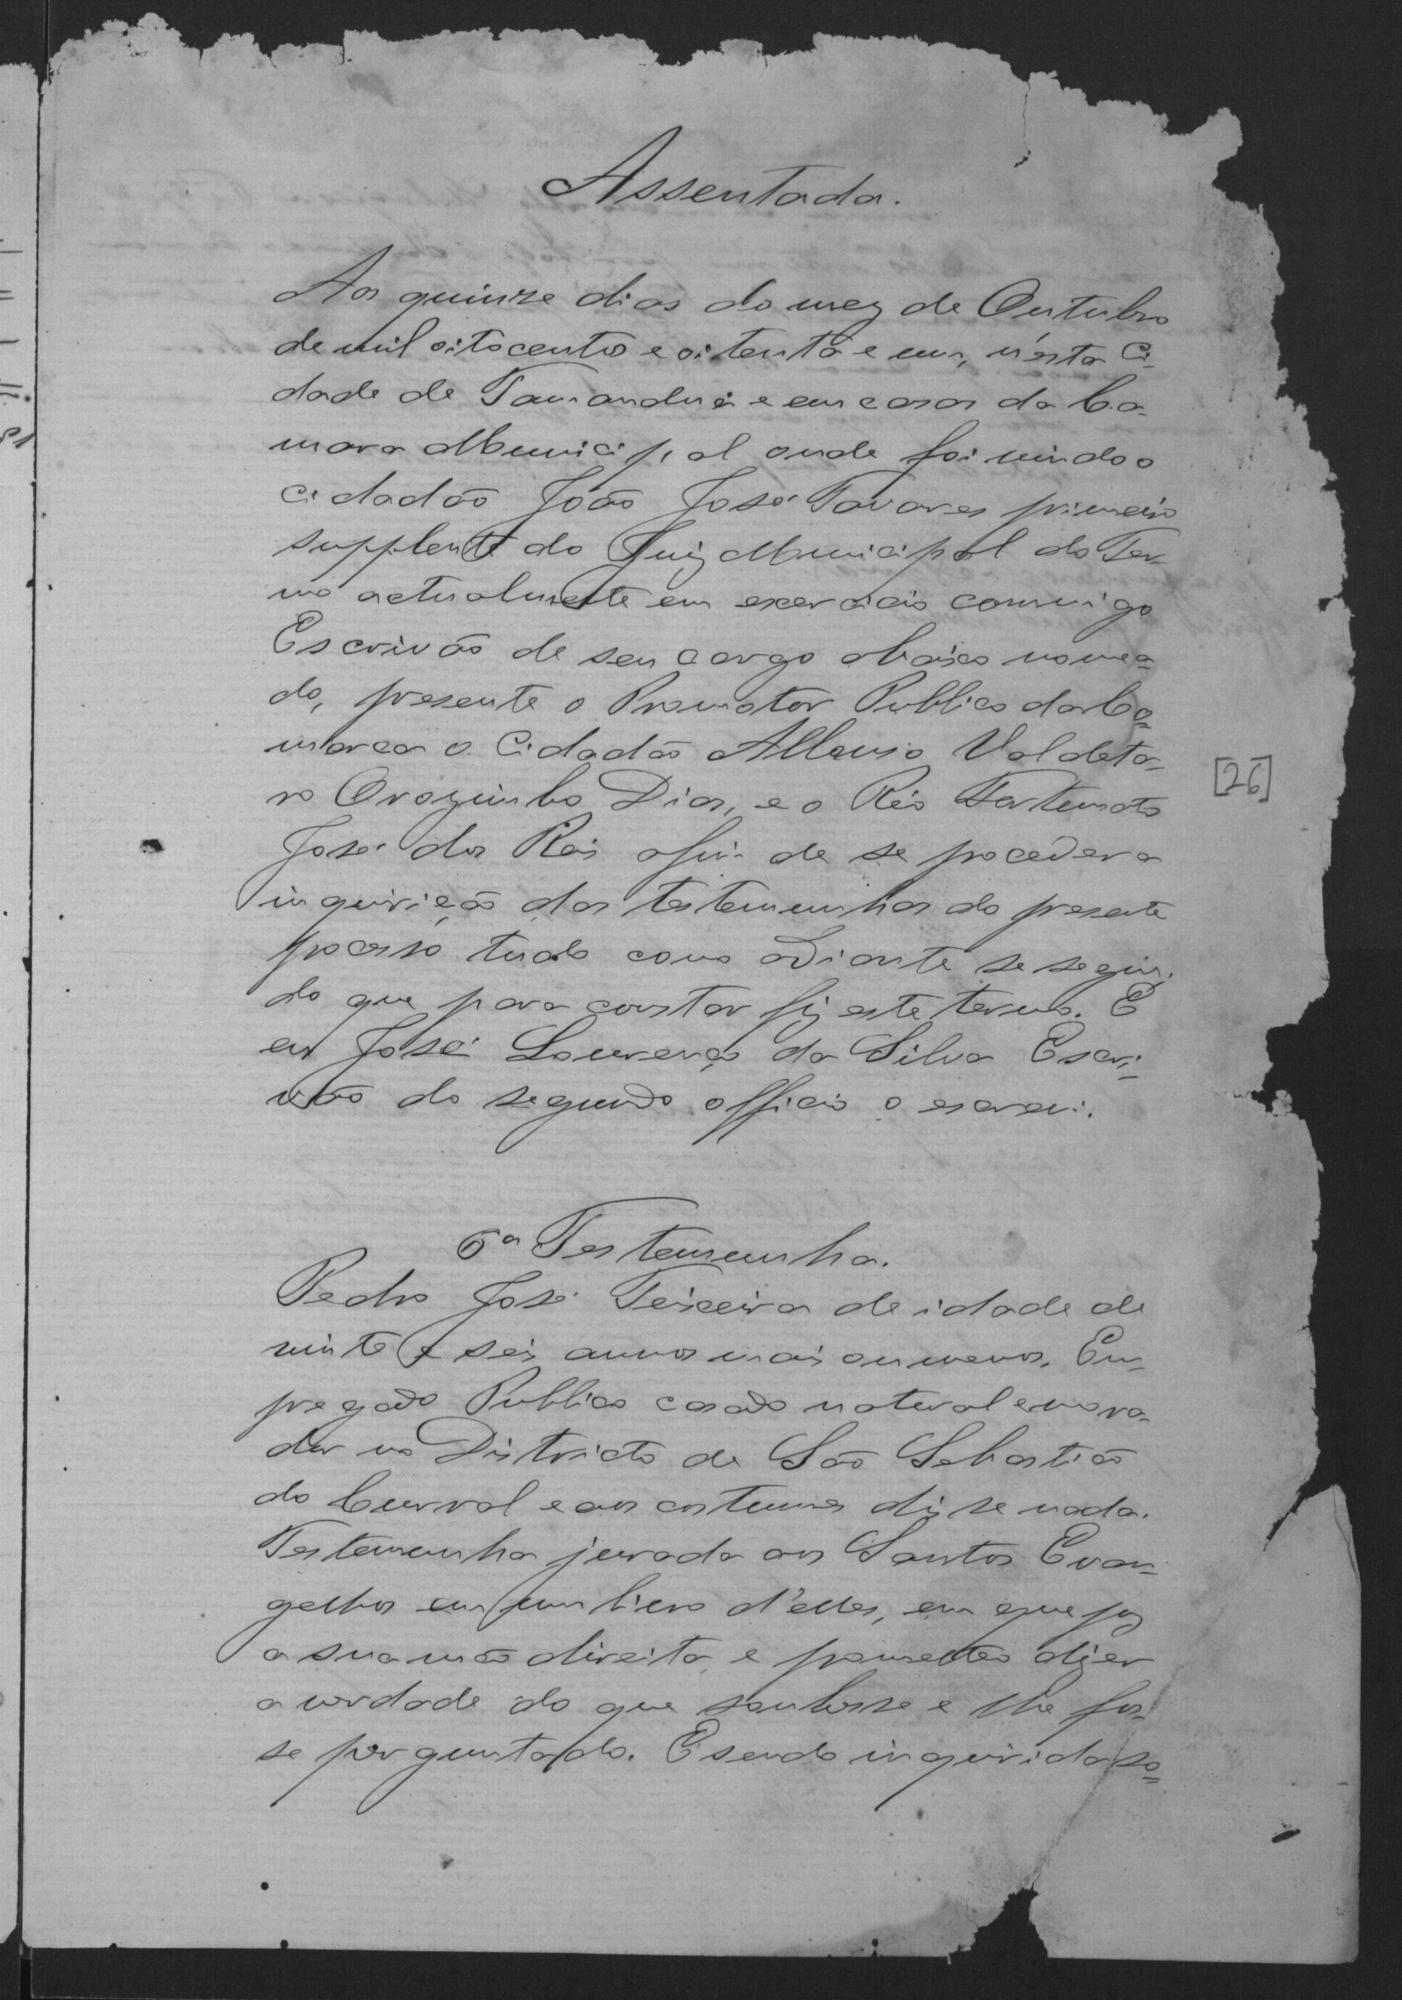 Assentada.
Aos quinze dias do mez de Outubro
de mil oitocentos e oitenta e um, n'esta Ci-
dade de Tamanduá e em casas da Ca-
mara Municipal onde foi vindo o
cidadão João José Tavares primeiro
supplente do Juiz Municipal do Ter-
mo actualmente em exercicio commigo
Escrivão de seu cargo abaixo nomea-
do, presente o Promotor Publico da Co-
marca o Cidadão Valdeta-
ro Orozimbo Dias, e o Réo Fortunato
José dos Reis afim de se proceder a
inquirição das testemunhas do presente
processo tudo como adiante se segui-
do que para constar fiz este termo. E
eu José Lourenço da Silva Escri-
vão do segundo officio o escrevi.
6ª Testemunha.
Pedro José Teixeira de idade de
vinte e seis annos mais ou menos, Em-
pregado Publico casado natural e mora-
dor no Districto de São Sebastião
do Curral e aos costumes disse nada.
Testemunha jurada aos Santos Evan-
gelhos em um livro d'elles, em que poz
a sua mão direita, e prometteo dizer
a verdade do que soubesse e lhe fos-
se perguntado. E sendo inquirida so-
[26]